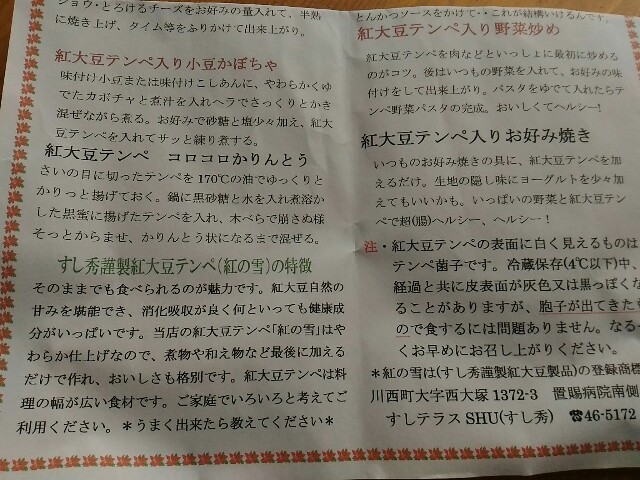 ショウ・とろけるチーズをお好みの量入れて、半熟
に焼き上げ、タイム等をふりかけて出来上がり。
紅大豆テンペ入り小豆かぼちゃ
味付け小豆または味付けこしあんに、やわらかくゆ
でたカボチャと煮汁を入れヘラでさっくりとかき
混ぜながら煮る。お好みで砂糖と塩少々加え、紅大
豆テンペを入れてサッと練り煮する。
紅大豆テンペ コロコロかりんとう
さいの目に切ったテンペを170℃の油でゆっくりと
かりっと揚げておく。鍋に黒砂糖と水を入れ煮溶か
した黒蜜に揚げたテンペを入れ、木べらで崩さぬ様
そっとからませ、かりんとう状になるまで混ぜる。
すし秀謹製紅大豆テンペ(紅の雪)の特徴
そのままでも食べられるのが魅力です。紅大豆自然の
甘みを堪能でき、消化吸収が良く何といっても健康成
分がいっぱいです。当店の紅大豆テンペ「紅の雪」はや
わらか仕上げなので、煮物や和え物など最後に加える
だけで作れ、おいしさも格別です。紅大豆テンペは料
理の幅が広い食材です。ご家庭でいろいろと考えてご
利用ください。＊うまく出来たら教えてください＊
とんかつソースをかけて・・これが結構いけるんです。
紅大豆テンペ入り野菜炒め
紅大豆テンペを肉などといっしょに最初に炒める
のがコツ。後はいつもの野菜を入れて、お好みの味
付けをして出来上がり。パスタをゆでて入れたらテ
ンペ野菜パスタの完成。おいしくてヘルシー!
紅大豆テンペ入りお好み焼き
いつものお好み焼きの具に、紅大豆テンペを加
えるだけ。生地の隠し味にヨーグルトを少々加
えてもいいかも。いっぱいの野菜と紅大豆テン
ペで超(腸)ヘルシー、ヘルシー!
注・紅大豆テンペの表面に白く見えるものは
テンペ菌子です。冷蔵保存(4℃以下)中、
経過と共に皮表面が灰色又は黒っぽくな
ることがありますが、胞子が出てきたも
ので食するには問題ありません。なるべ
くお早めにお召し上がりください。
＊紅の雪は(すし秀謹製紅大豆製品)の登録商標
川西町大字西大塚1372-3 置賜病院南側
すしテラス SHU(すし秀) ☎46-5172